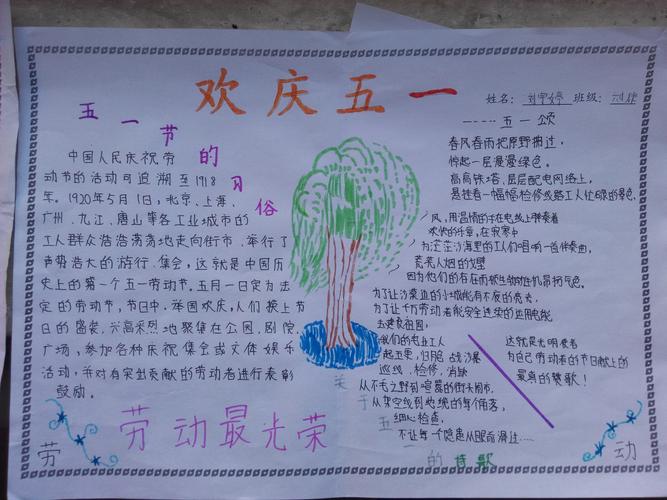 欢庆五一
姓名: 班级:
五一节的习俗
中国人民庆祝劳
动节的活动可追溯至1918
年。1920年5月1日,北京、上海、
广州、九江、唐山等各工业城市的
工人群众浩浩荡荡地走向街市、举行了
声势浩大的游行、集会,这就是中国历
史上的第一个五一劳动节。五月一日定为法
定的劳动节,节日中,举国欢庆,人们换上节
日的盛装,兴高采烈地聚集在公园、剧院、
广场,参加各种庆祝集会或文体娱乐
活动,并对有突出贡献的劳动者进行表彰
鼓励。
劳动最光荣
劳
----五一颂
春风春雨把原野拂过,
惊起一层漫漫绿色。
高高铁塔、层层配电网络上,
是挂着一幅幅检修线路工人忙碌的景色,
风,用温情的手在电线上弹奏着
欢快的伴音,在寂寞中
为茫茫沙海里的工人们唱响一首伴奏曲,
荒芜人烟的戈壁
因为他们的存在而被生物的生机昂扬气色。
为了让沙粟亚的小城能有不夜的亮光,
为了让千万劳动者能安全连续的运用电能,
去建麦祖国,
我们的电业工人
起五更,归陪战沙暴
巡线、检修、消缺
从不毛之野到喧嚣的街头闹市,
从架空线到地缆的每个角落,
细心检查,
不让每一个隐患从眼前滑过……
这就是光明使者
为自己劳动者的节日献上的
最真的赞歌!
关于五一的诗歌
动